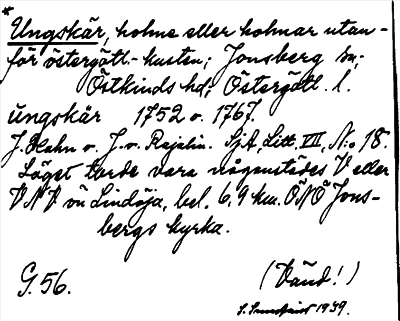 * Ungskär, holme eller holmar utan-
för östergötl.-kusten; Jonsberg sn;
Östkinds hd; Östergötl. l.
ungskär 1752 o. 1767.
J. Hahn o. J. v. Rajelin. SjA, Litt. VII, N:o 18.
Läget torde vara någonstädes V eller
VNV om Lindöja, bel. 6,9 km. ÖNÖ Jons-
bergs kyrka.
G. 56. (Vänd!)
1939.